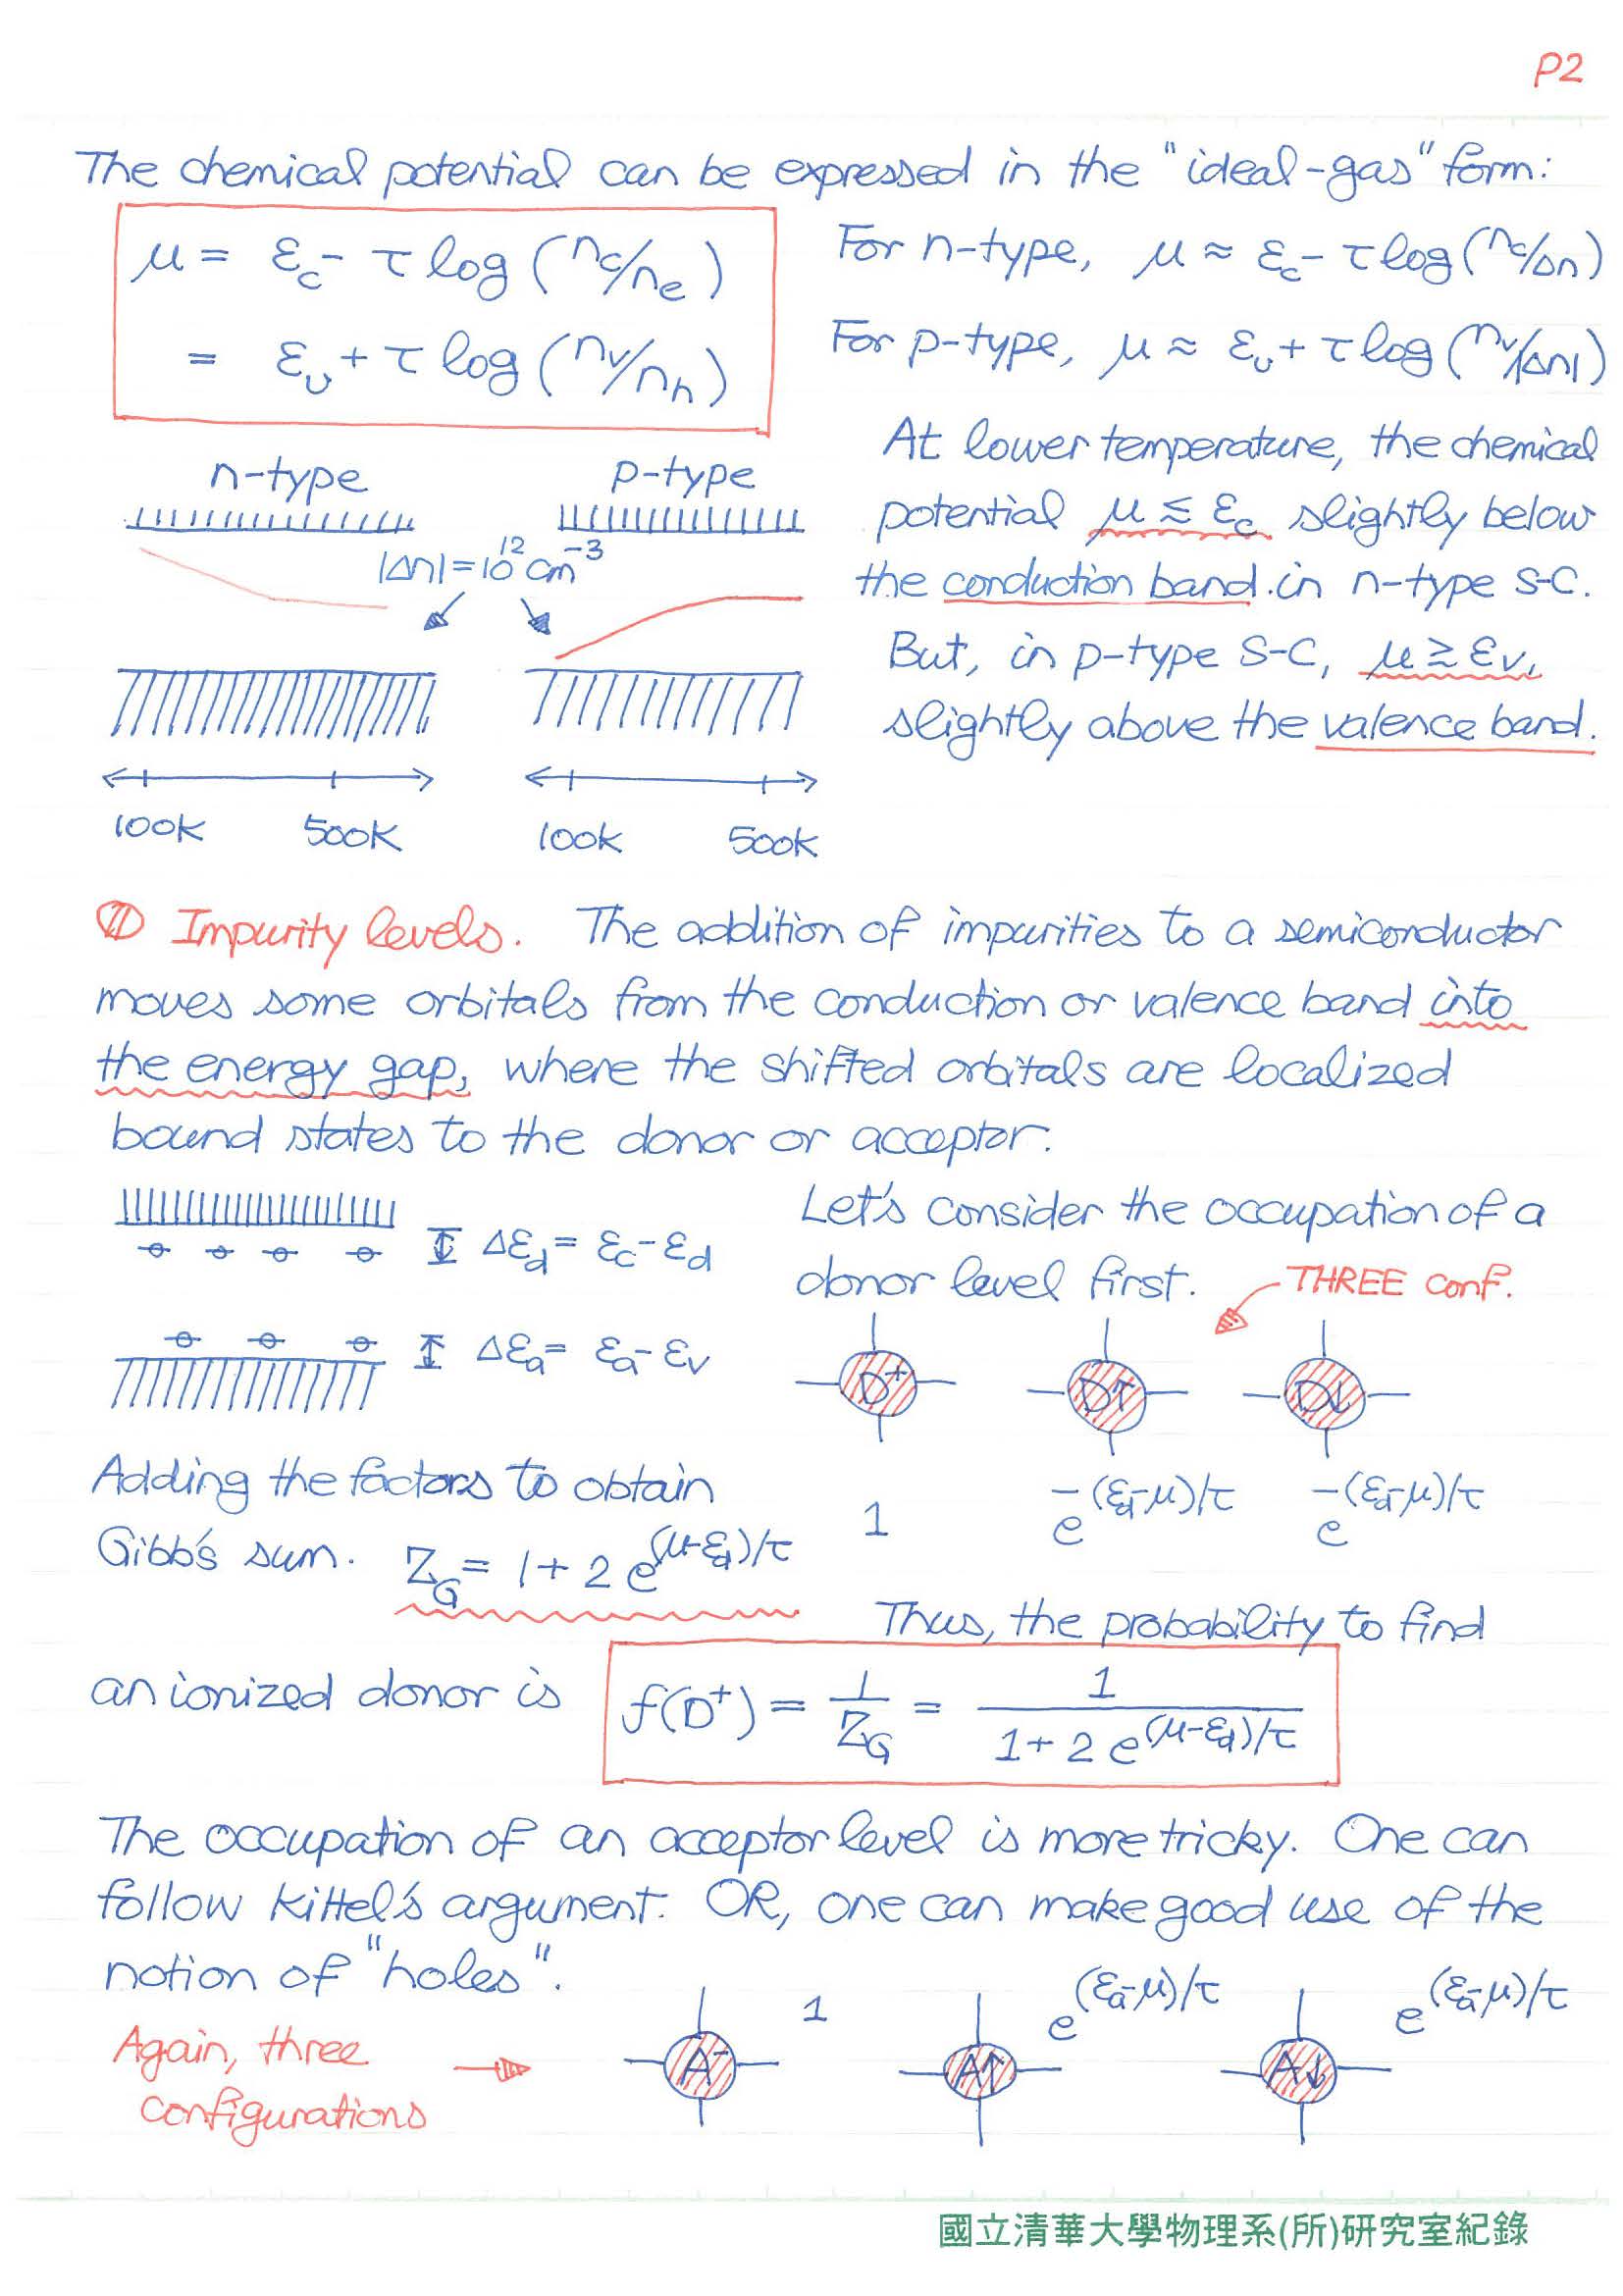 P2
The chemical potential can be expressed in the "ideal-gas" form:
μ = εc - τ log (nc/ne)
= εv + τ log (nv/nh)
For n-type, μ ≈ εc - τ log (nc/Δn)
For p-type, μ ≈ εv + τ log (nv/|Δn|)
n-type
p-type
|Δn| = 10^12 cm^-3
100K
500K
100K
500K
At lower temperature, the chemical
potential μ ≲ εc slightly below
the conduction band in n-type S-C.
But, in p-type S-C, μ ≳ εv,
slightly above the valence band.
Impurity levels. The addition of impurities to a semiconductor
moves some orbitals from the conduction or valence band into
the energy gap, where the shifted orbitals are localized
bound states to the donor or acceptor.
Δεd = εc - εd
Δεa = εa - εv
Let's consider the occupation of a
donor level first.
THREE conf.
D+ D↑ D↓
1 e^-(εd-μ)/τ e^-(εd-μ)/τ
Adding the factors to obtain
Gibb's sum. Z_G = 1 + 2 e^(μ-εd)/τ
Thus, the probability to find
an ionized donor is f(D+) = 1/Z_G = 1/(1 + 2 e^(μ-εd)/τ)
The occupation of an acceptor level is more tricky. One can
follow Kittel's argument. OR, one can make good use of the
notion of "holes".
Again, three
configurations
A- 1 A↑ e^(εa-μ)/τ A↓ e^(εa-μ)/τ
國立清華大學物理系(所)研究室紀錄